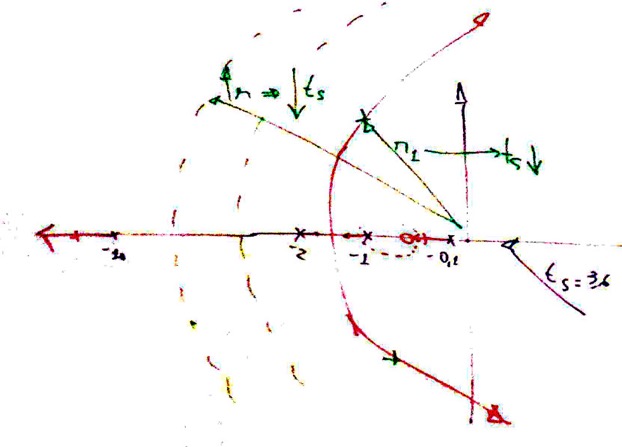 r ⇒ ↓ ts
r1
ts ↓
-10
-2
-1
-0,1
ts = 36